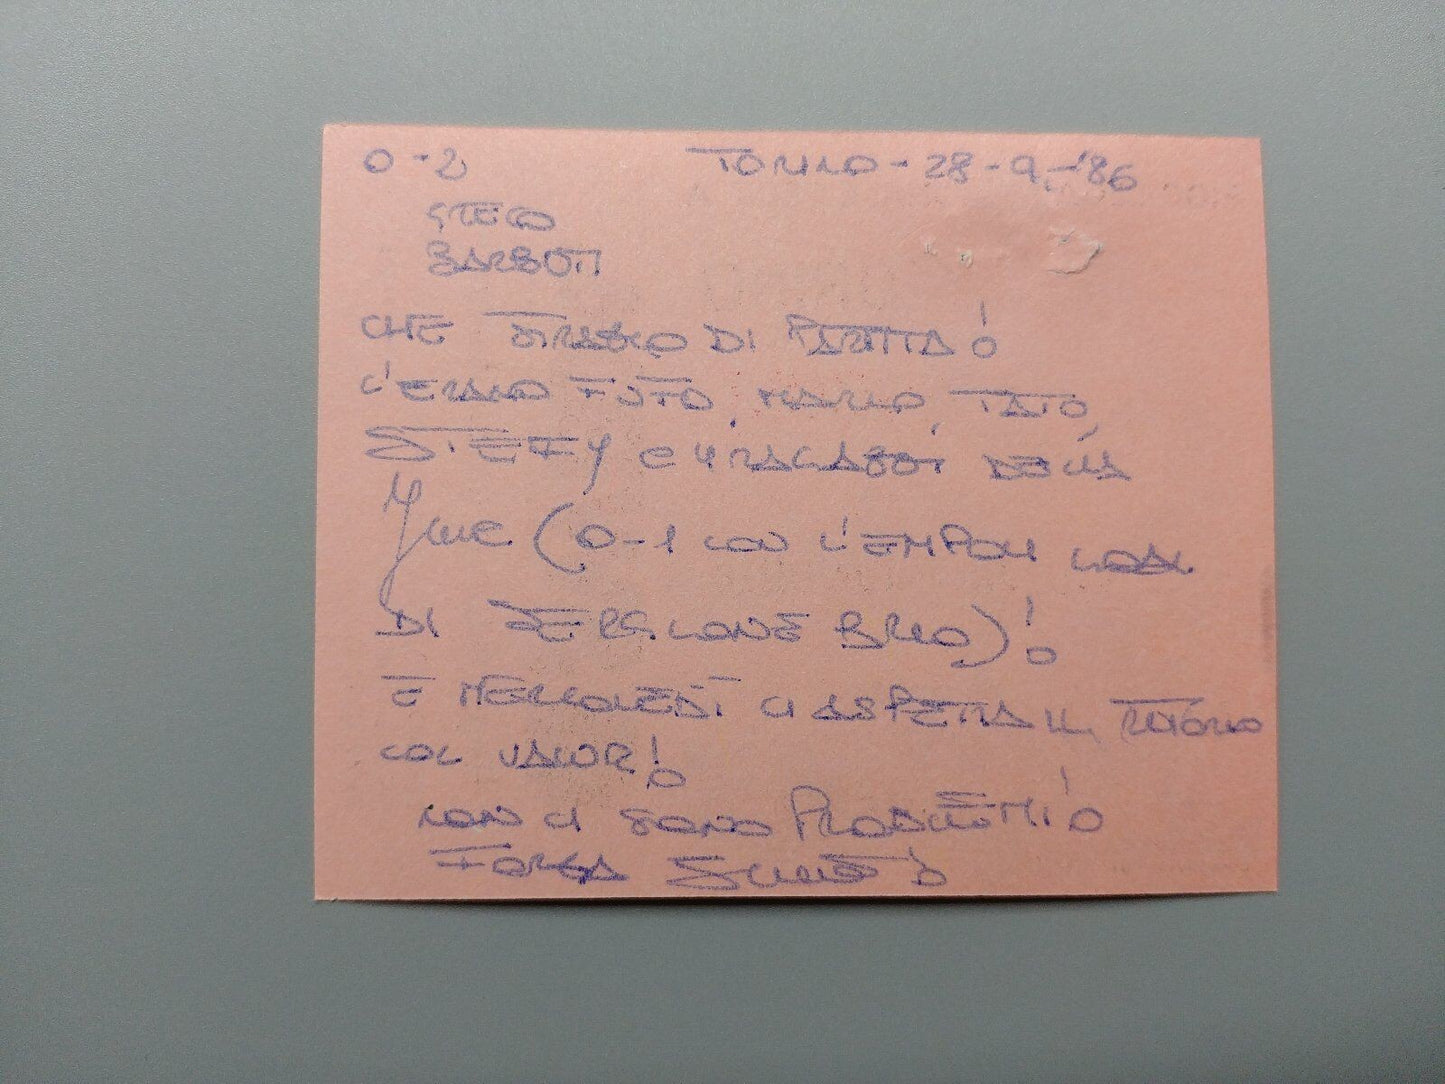 0-2 TORINO - 28-9-'86
GRECO
BARBUTI
CHE STRAZIO DI PARTITA!
C'ERANO TUTO, MARIO, TATO,
STEFY E I RAGAZZI DELLA
Juve (0-1 CON L'EMPOLI GOAL
DI SERGIONE BRIO)!
E MERCOLEDÌ CI ASPETTA IL RITORNO
COL VALUR!
NON CI SONO PROBLEMI!
FORZA